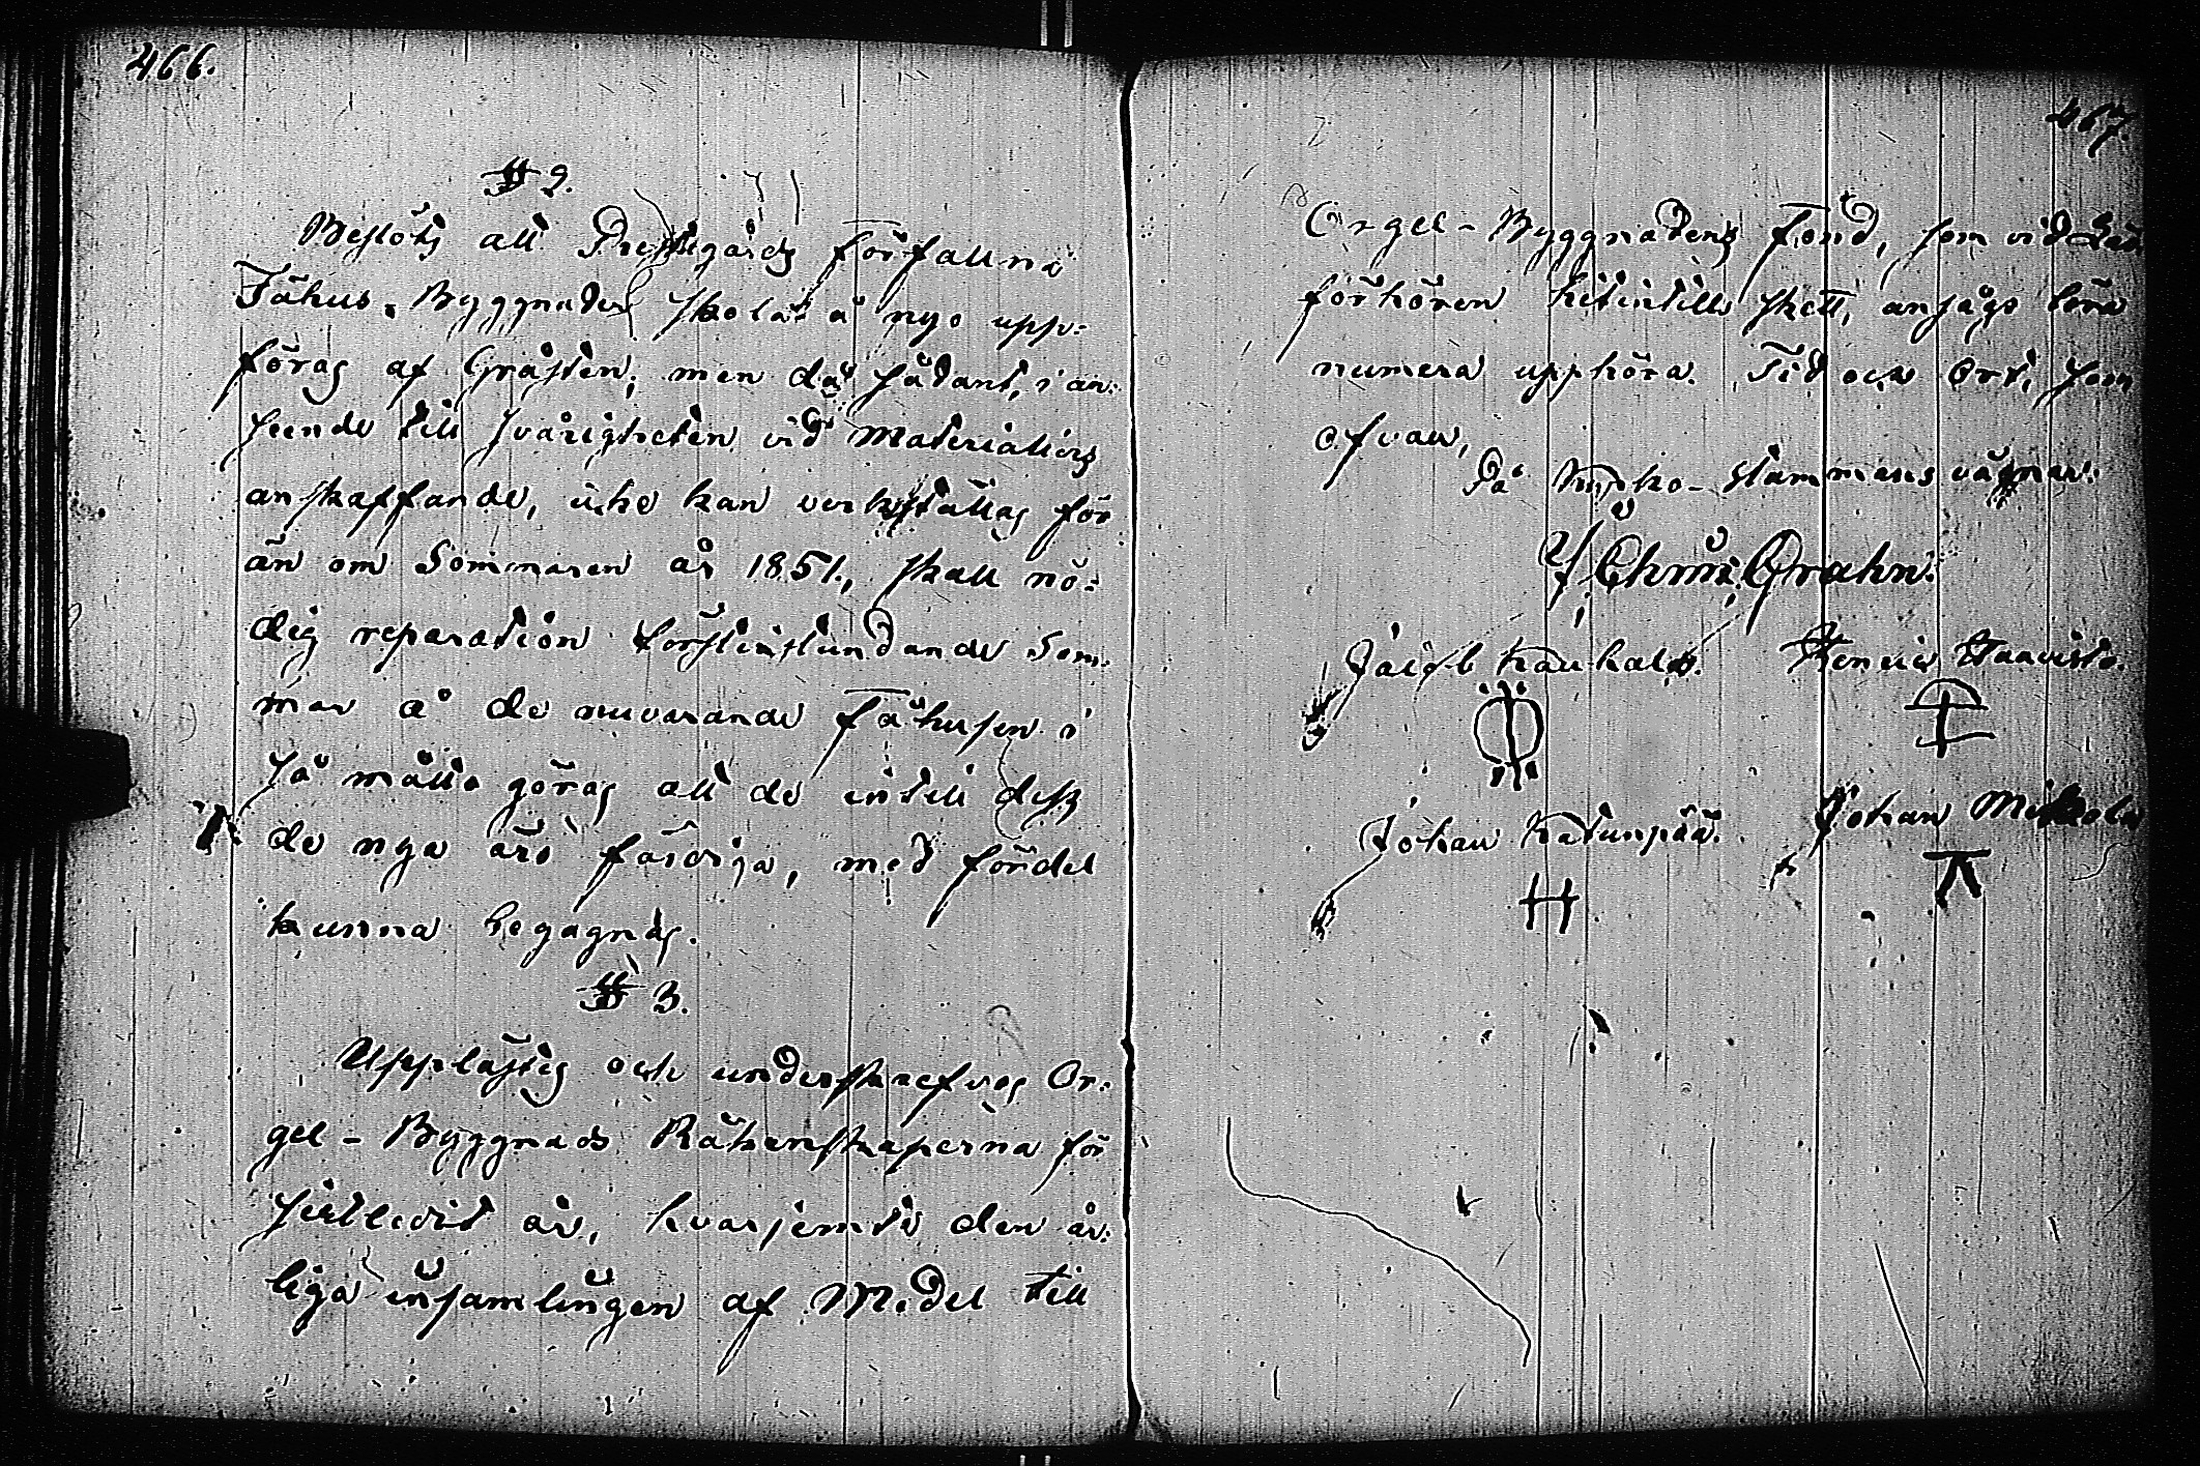 466.
§ 2.
Beslöts att Prestgårds förfallna
Fähus-Byggnader skola å nyo upp-
föras af Gråsten; men då sådant, i an-
seende till svårigheten vid Materialiers
anskaffande, icke kan verkställas för
än om Sommaren år 1851., skall nö-
dig reparation förstinstundande Som-
mar å de nuvarande Fähusen i
så måtto göras att de intill dess
de nya äro färdiga, med fördel
kunna begagnas.
§ 3.
Upplästes och underskrefvos Or-
gel-Byggnads Räkenskaperna för
sistledit år, hvarjemte den år-
liga insamlingen af Medel till
467.
Orgel-Byggnadens fond, som vid Läs
förhören hitintills skett, ansågs böra
numera upphöra. Tid och Ort, som
ofvan,
På Kyrko-Stämmans vägnar:
Chrn: Grahn.
Jacob Kauhala. Henric Haavisto.
Johan Katunpää. Johan Mikkola